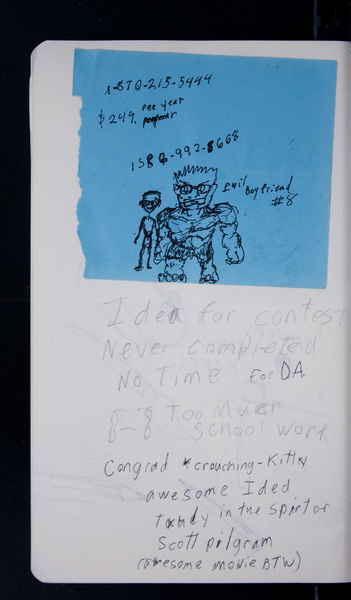 1-870-215-5444
$249. per year
1586-992-8668
Evil Boyfriend
#8
Idea for contest
Never completed
No Time For DA
Too Much
School work
Congrad *crouching-Kitty
awesome Ided
in the spirt of
Scott pilgram
(awesome movie BTW)